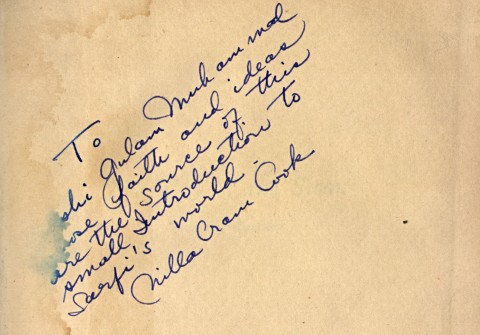 To Muhammad
shi Gulam
ose faith and ideas
are the source of this
small Introduction to
Sarfi's world -
Nilla Cram Cook